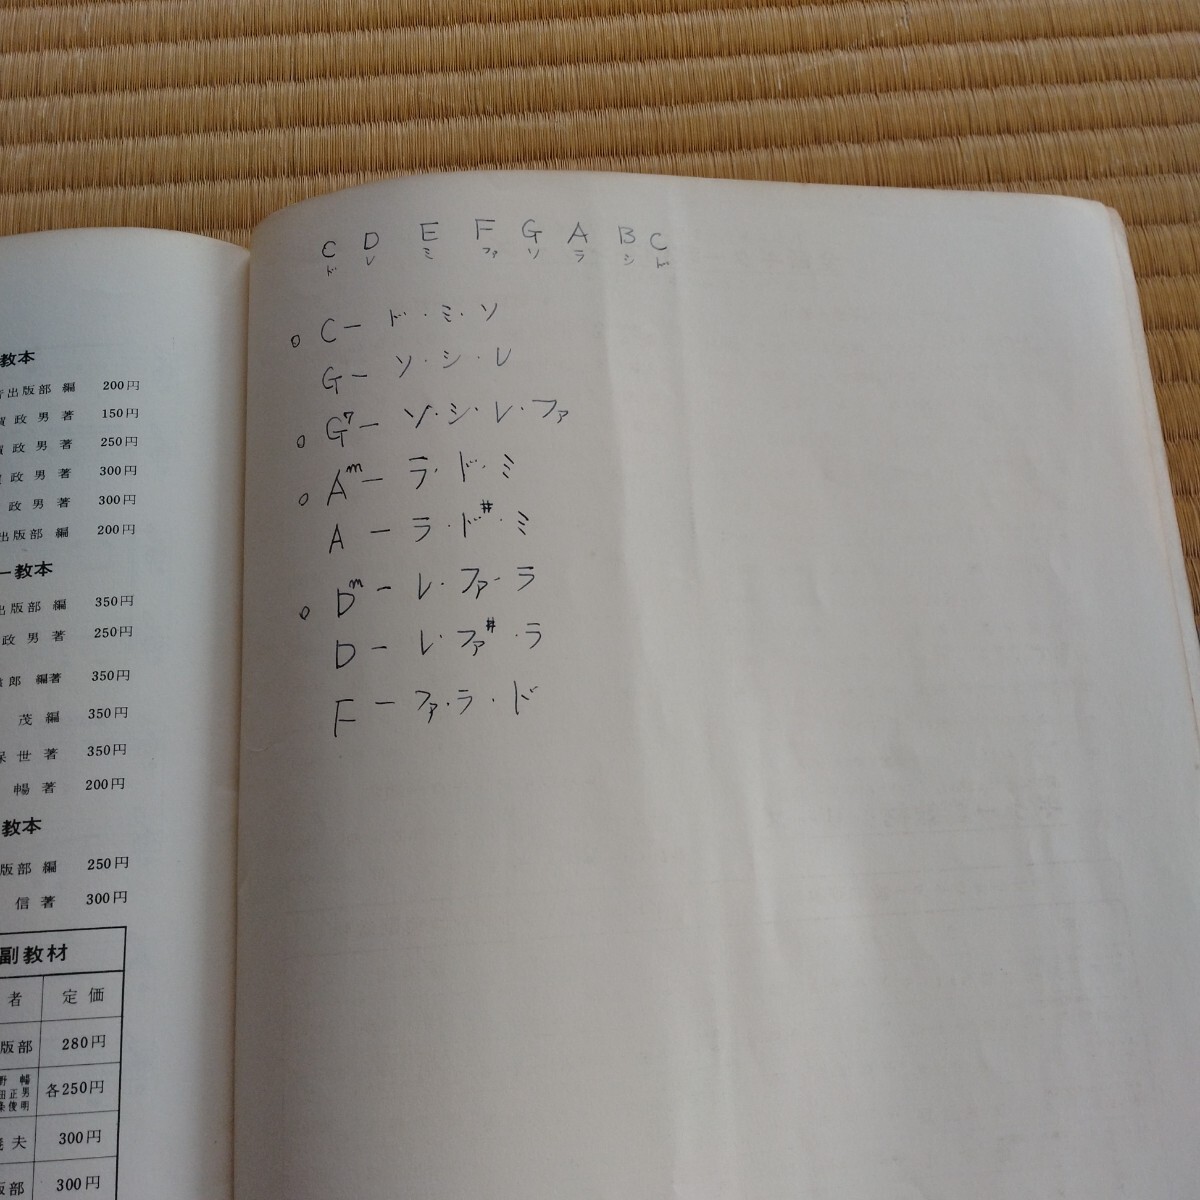 教本
出版部 編 200円
政男著 150円
政男著 250円
政男著 300円
政男著 300円
出版部 編 200円
ー教本
出版部 編 350円
政男著 250円
郎 編著 350円
茂編 350円
保世著 350円
暢著 200円
教本
版部 編 250円
信著 300円
副教材
者 定価
版部 280円
野 暢
田正男
条俊明
各250円
夫 300円
版部 300円
C D E F G A B C
ド レ ミ ファ ソ ラ シ ド
○ C ー ド・ミ・ソ
G ー ソ・シ・レ
○ G7 ー ソ・シ・レ・ファ
○ Am ー ラ・ド・ミ
A ー ラ・ド#・ミ
○ Dm ー レ・ファ・ラ
D ー レ・ファ#・ラ
F ー ファ・ラ・ド